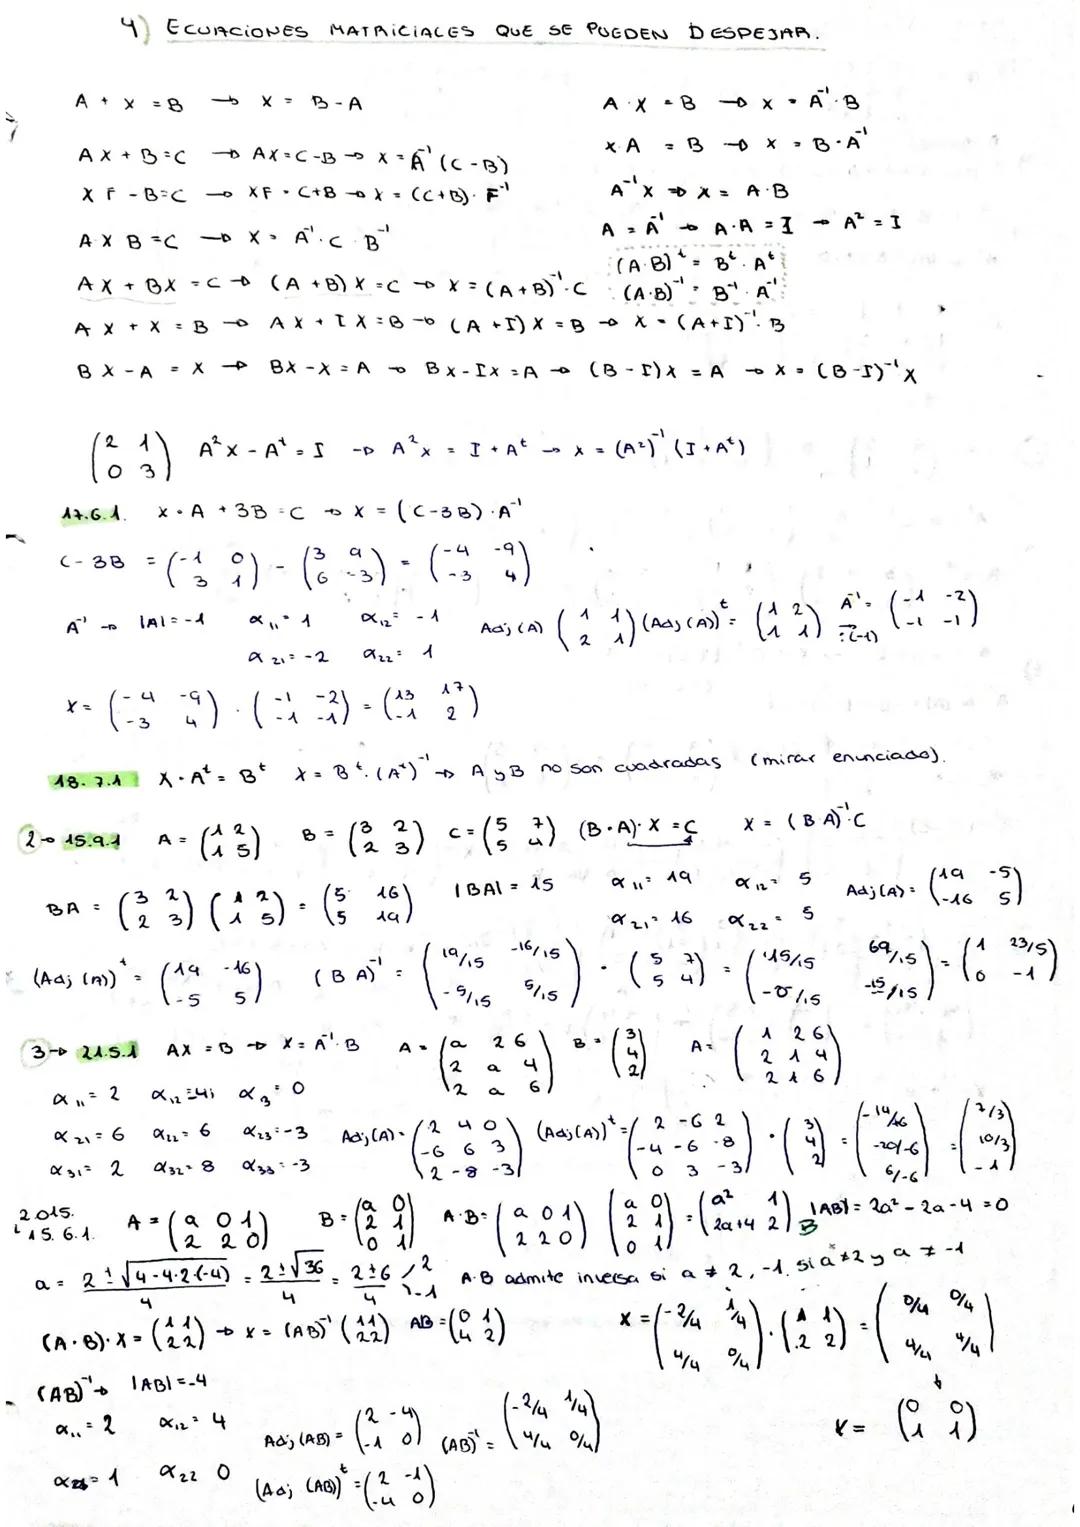 4) ECUACIONES MATRICIALES QUE SE PUEDEN DESPEJAR.
A + X = B → X = B - A
A · X = B → X = A⁻¹ · B
AX + B = C → AX = C - B → X = A⁻¹ (C - B)
X · A = B → X = B · A⁻¹
X F - B = C → XF = C + B → X = (C + B) · F⁻¹
A⁻¹ X → X = A · B
A = A⁻¹ → A · A = I → A² = I
A X B = C → X = A⁻¹ · C · B⁻¹
(A·B)ᵗ = Bᵗ · Aᵗ
AX + BX = C → (A + B) X = C → X = (A + B)⁻¹ · C
(A·B)⁻¹ = B⁻¹ · A⁻¹
A X + X = B → AX + IX = B → (A + I) X = B → X = (A + I)⁻¹ · B
B X - A = X → BX - X = A → BX - IX = A → (B - I) X = A → X = (B - I)⁻¹ X
(2 1; 0 3) A² X - Aᵗ = I → A² X = I + Aᵗ → X = (A²)⁻¹ (I + Aᵗ)
17.6.1. X · A + 3B = C → X = (C - 3B) · A⁻¹
C - 3B = (-1 0; 3 1) - (3 9; 6 -3) = (-4 -9; -3 4)
A⁻¹ → |A| = -1 α₁₁ = 1 α₁₂ = -1 Adj (A) (1 1; 2 1) (Adj (A))ᵗ = (1 2; 1 1) A⁻¹ = :(-1) (-1 -2; -1 -1)
α₂₁ = -2 α₂₂ = 1
X = (-4 -9; -3 4) · (-1 -2; -1 -1) = (13 17; -1 2)
18.7.1 X · Aᵗ = Bᵗ X = Bᵗ · (Aᵗ)⁻¹ → A y B no son cuadradas (mirar enunciado).
2 → 15.9.1 A = (1 2; 1 5) B = (3 2; 2 3) C = (5 7; 5 4) (B · A) · X = C X = (BA)⁻¹ C
BA = (3 2; 2 3) (1 2; 1 5) = (5 16; 5 19) |BA| = 15 α₁₁ = 19 α₁₂ = 5 Adj (A) = (19 -5; -16 5)
α₂₁ = 16 α₂₂ = 5
(Adj (A))ᵗ = (19 -16; -5 5) (BA)⁻¹ = (19/15 -16/15; -5/15 5/15) · (5 7; 5 4) = (15/15 69/15; -0/15 -15/15) = (1 23/5; 0 -1)
3 → 21.5.1 AX = B → X = A⁻¹ · B A = (a 2 6; 2 a 4; 2 a 6) B = (3; 4; 2) A = (1 2 6; 2 1 4; 2 1 6)
α₁₁ = 2 α₁₂ = 4 α₃ = 0
α₂₁ = 6 α₂₂ = 6 α₂₃ = -3 Adj (A) = (2 4 0; -6 6 3; 2 -8 -3) (Adj (A))ᵗ = (2 -6 2; -4 -6 -8; 0 3 -3) · (3; 4; 2) = (-14/-6; -20/-6; 6/-6) = (7/3; 10/3; -1)
α₃₁ = 2 α₃₂ = 8 α₃₃ = -3
2015.
15.6.1. A = (a 0 1; 2 2 0) B = (a 0; 2 1; 0 1) A·B = (a 0 1; 2 2 0) (a 0; 2 1; 0 1) = (a² 1; 2a+4 2) |AB| = 2a² - 2a - 4 = 0
a = 2 ± √(4 - 4·2(-4)) / 4 = 2 ± √36 / 4 = 2 ± 6 / 4 2 -1 A·B admite inversa si a ≠ 2, -1. si a ≠ 2 y a ≠ -1
(A · B) · X = (1 1; 2 2) → X = (AB)⁻¹ (1 1; 2 2) AB = (0 1; 4 2) X = (-2/4 1/4; 4/4 0/4) · (1 1; 2 2) = (0/4 0/4; 4/4 4/4)
(AB)⁻¹ → |AB| = -4
α₁₁ = 2 α₁₂ = 4 Adj (AB) = (2 -4; -1 0) (AB)⁻¹ = (-2/4 1/4; 4/4 0/4) X = (0 0; 1 1)
α₂₁ = 1 α₂₂ 0 (Adj (AB))ᵗ = (2 -1; -4 0)